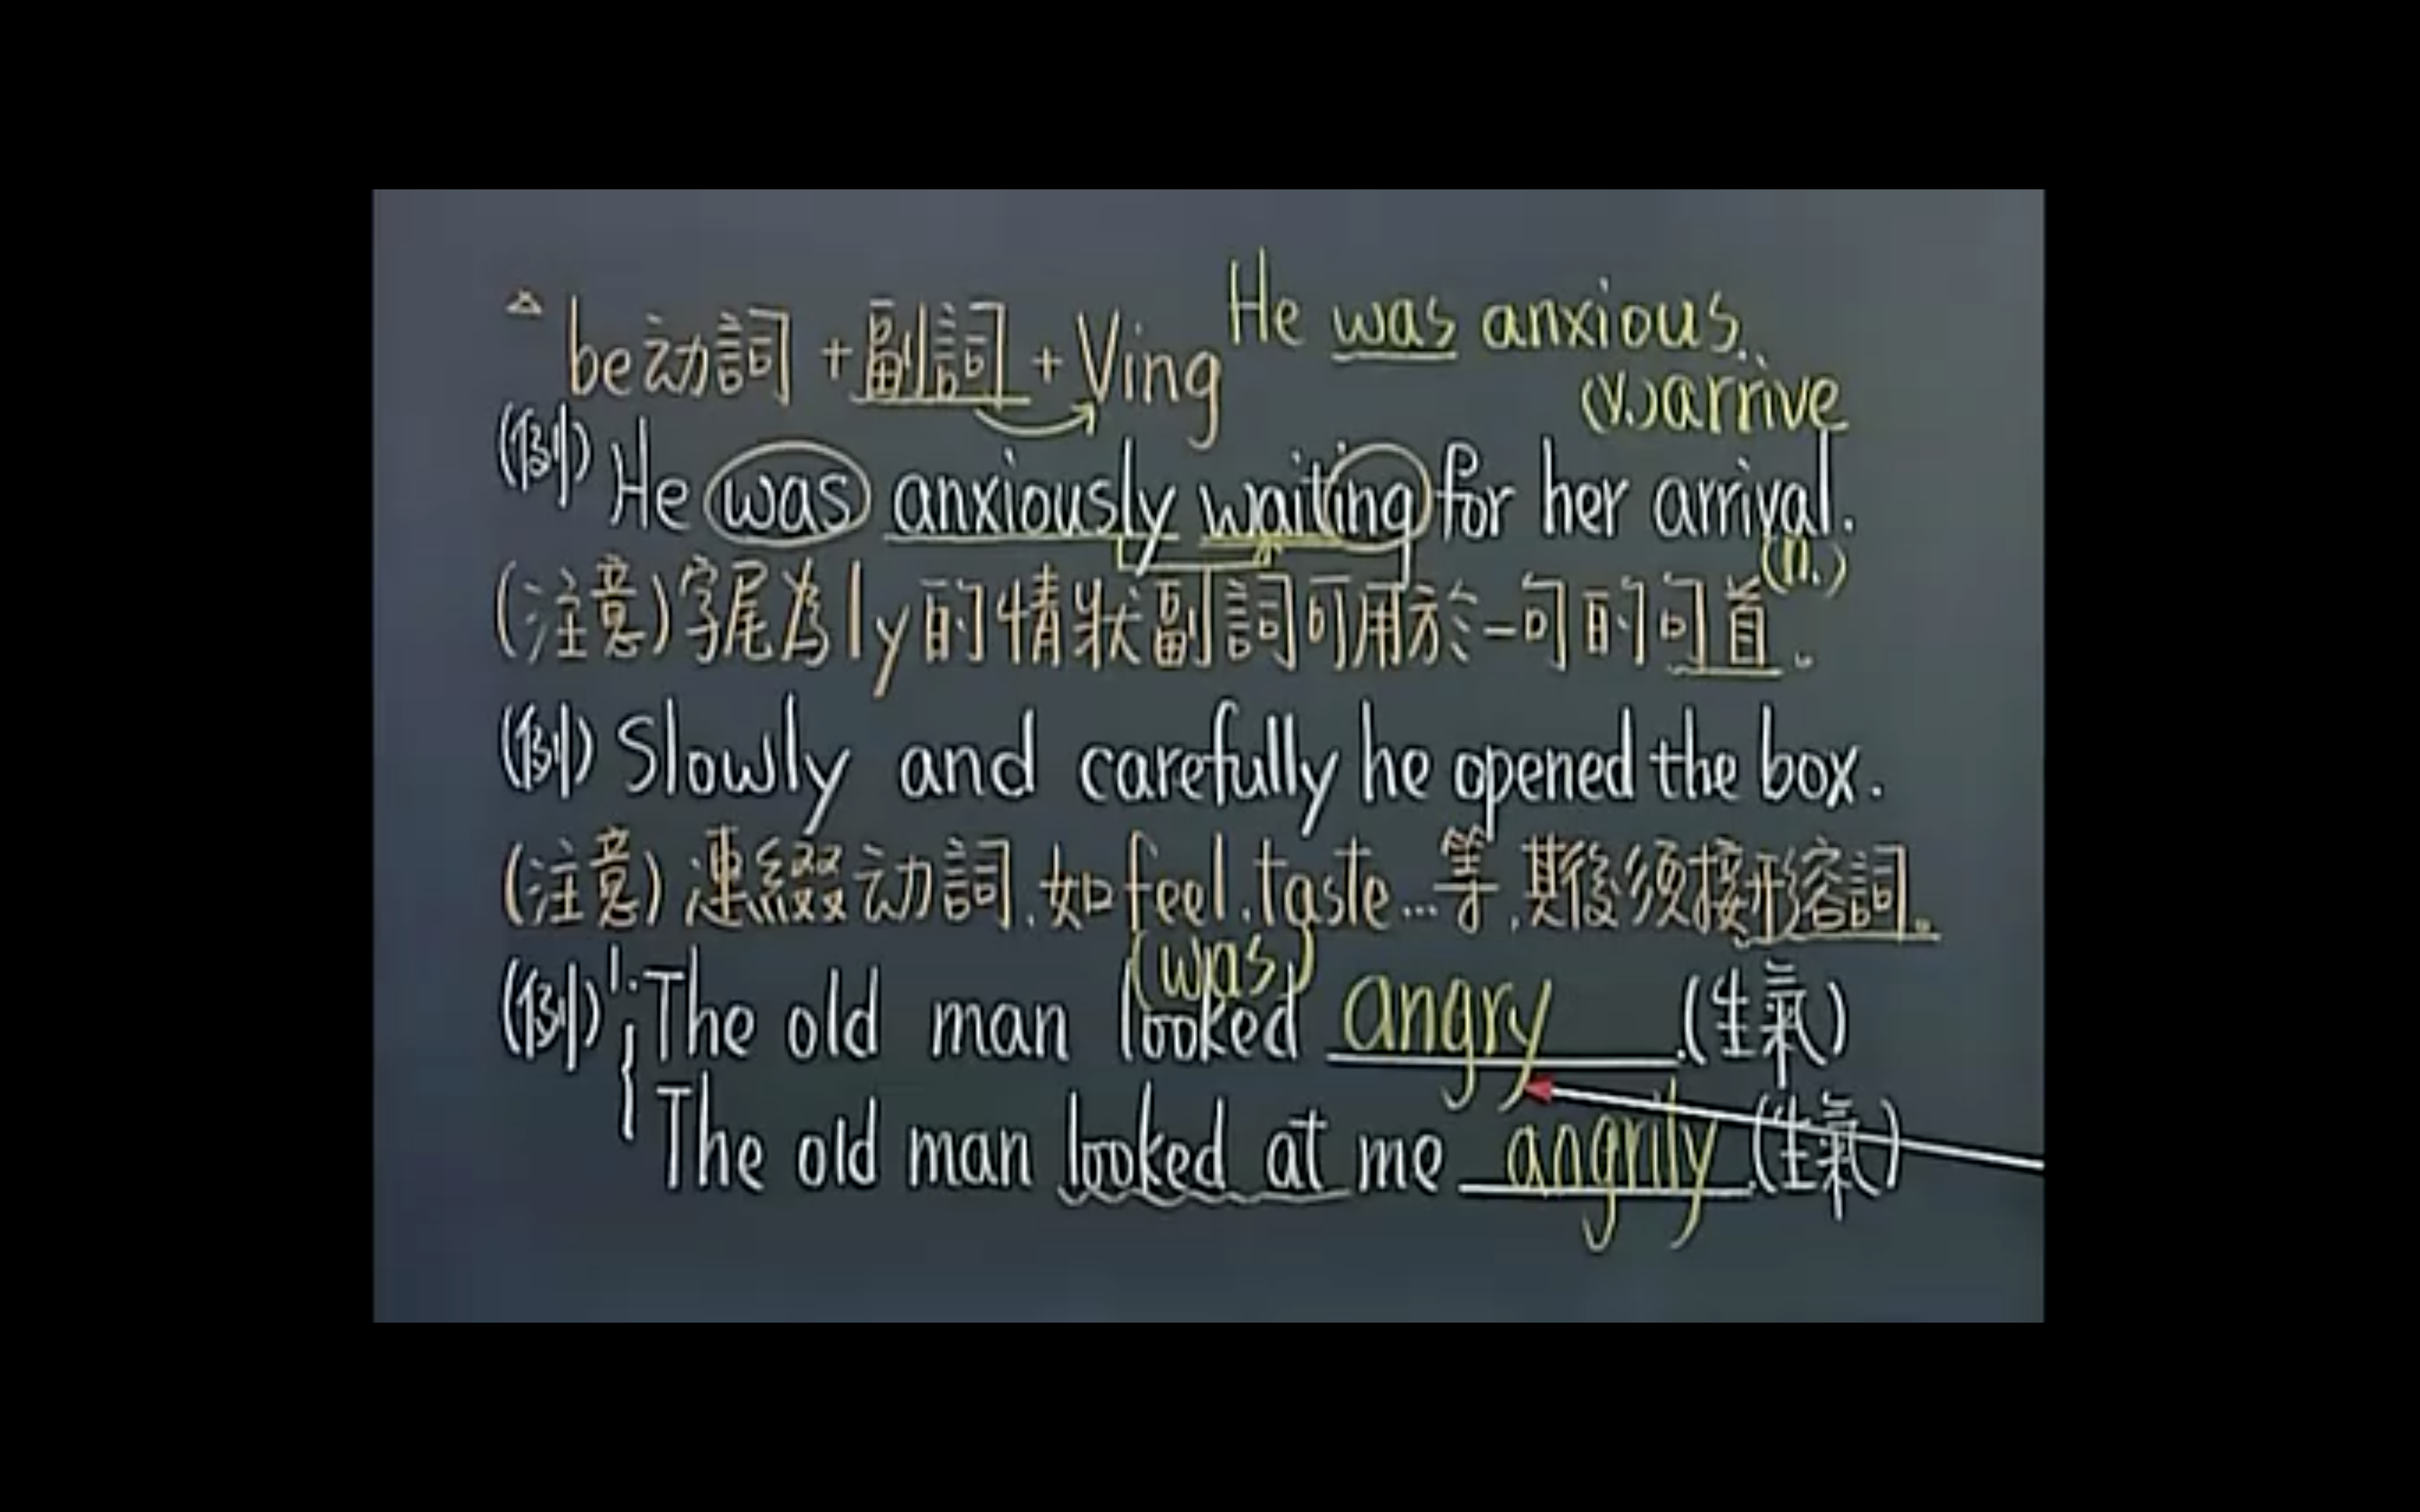 △ be动詞+副詞+Ving He was anxious.
(v.)arrive
(例) He was anxiously waiting for her arrival.
(n.)
(注意)字尾為ly的情狀副詞可用於一句的句首。
(例) Slowly and carefully he opened the box.
(注意)連綴动詞,如feel,taste...等,其後须接形容詞。
(was)
(例) 1. The old man looked angry.(生氣)
The old man looked at me angrily.(生氣)